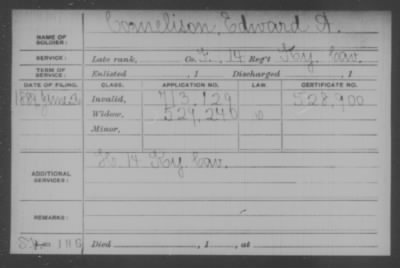 NAME OF SOLDIER: Cornelison, Edward A.
SERVICE: Late rank, Co. F, 14 Reg't Ky. Cav.
TERM OF SERVICE: Enlisted , 1 Discharged , 1
DATE OF FILING. CLASS. APPLICATION NO. LAW. CERTIFICATE NO.
1889 June Invalid, 713,129 528,900
Widow, 529,246
Minor,
ADDITIONAL SERVICES: H. 14 Ky. Cav.
REMARKS:
Died , 1 , at